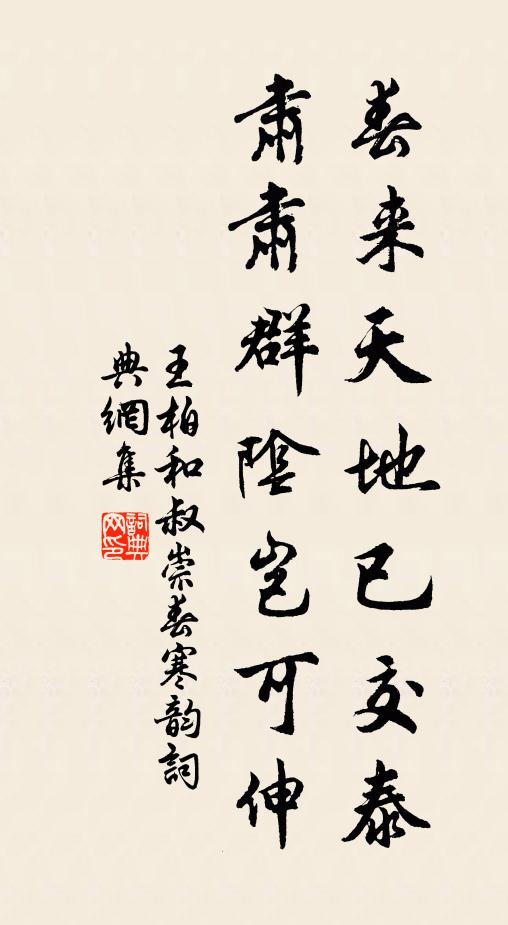 春来天地已交泰
肅肅群陰豈可伸
王柏和叔崇春寒韵詞
典網集
詞典
网印